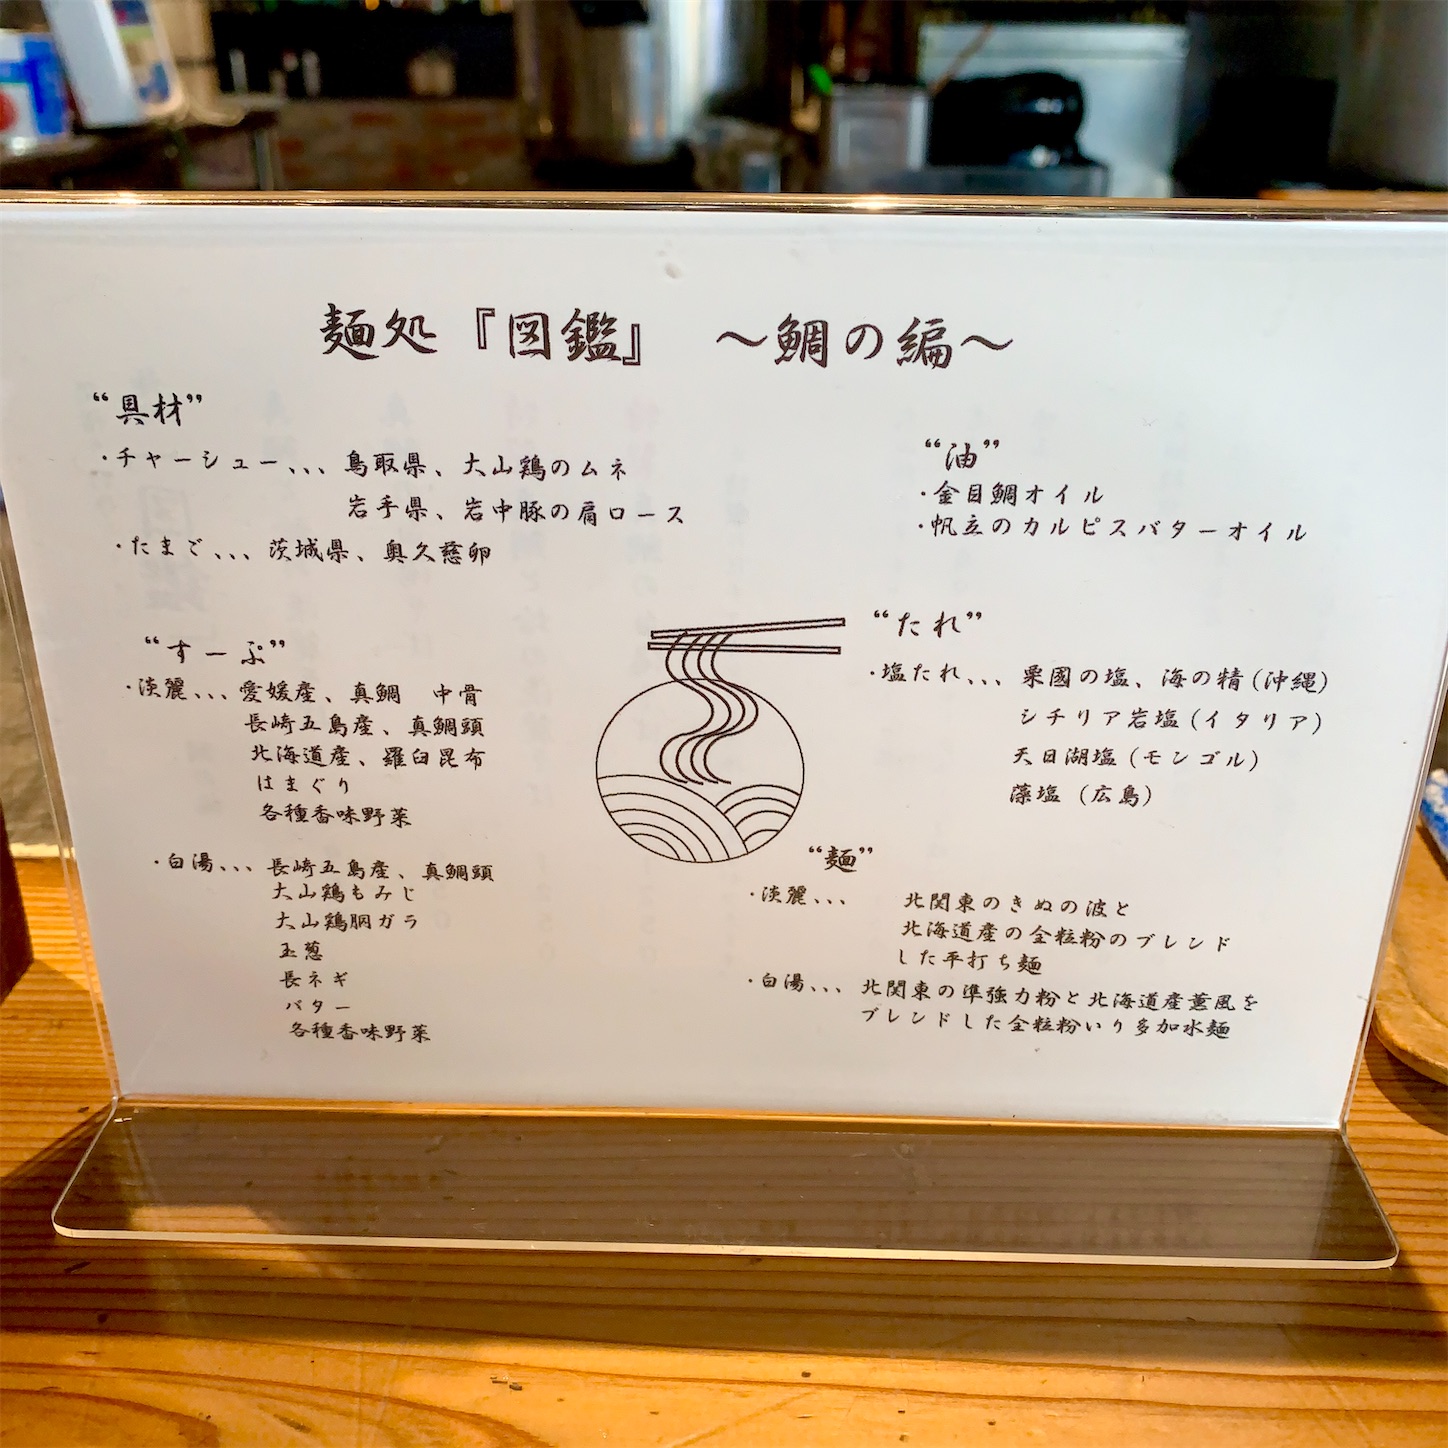 麺処『図鑑』 〜鯛の編〜
“具材”
・チャーシュー、、、鳥取県、大山鶏のムネ
岩手県、岩中豚の肩ロース
・たまご、、、茨城県、奥久慈卵
“すーぷ”
・淡麗、、、愛媛産、真鯛 中骨
長崎五島産、真鯛頭
北海道産、羅臼昆布
はまぐり
各種香味野菜
・白湯、、、長崎五島産、真鯛頭
大山鶏もみじ
大山鶏胴ガラ
玉葱
長ネギ
バター
各種香味野菜
“油”
・金目鯛オイル
・帆立のカルピスバターオイル
“たれ”
・塩たれ、、、粟國の塩、海の精(沖縄)
シチリア岩塩(イタリア)
天日湖塩(モンゴル)
藻塩(広島)
“麺”
・淡麗、、、 北関東のきぬの波と
北海道産の全粒粉のブレンド
した平打ち麺
・白湯、、、北関東の準強力粉と北海道産薫風を
ブレンドした全粒粉いり多加水麺